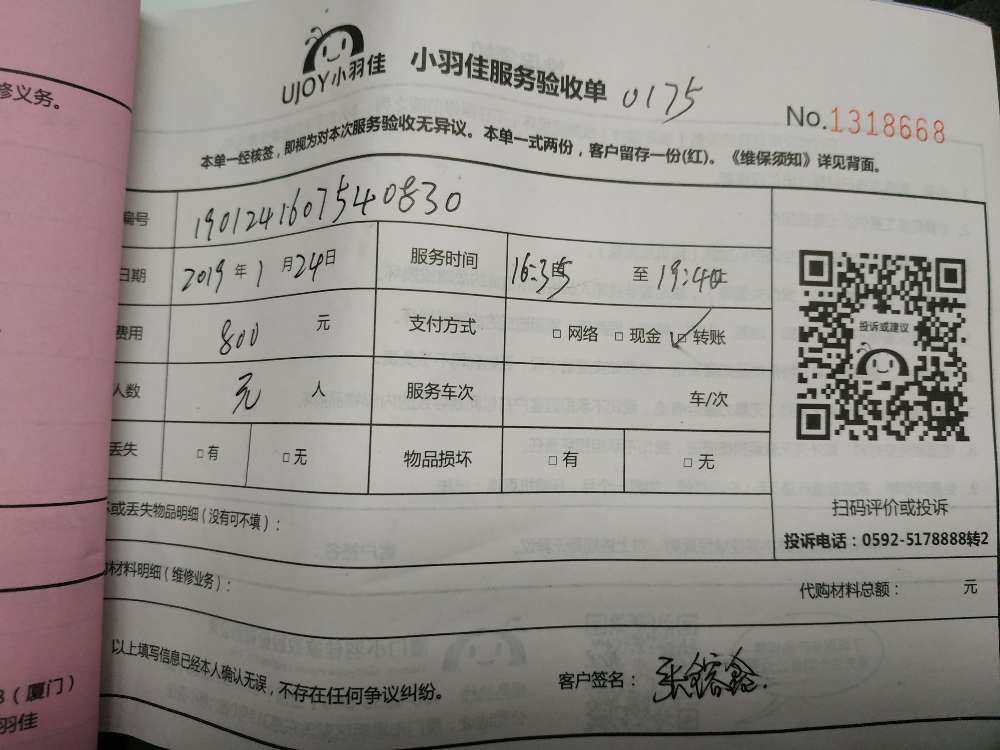 修义务。
UJOY小羽佳 小羽佳服务验收单 0175
No.1318668
本单一经核签，即视为对本次服务验收无异议。本单一式两份，客户留存一份(红)。《维保须知》详见背面。
编号 1901241607540830
日期 2019年1月24日 服务时间 16:35 至 19:40
费用 800 元 支付方式 □网络 □现金 □转账
投诉或建议
人数 人 服务车次 车/次
丢失 □有 □无 物品损坏 □有 □无
扫码评价或投诉
坏或丢失物品明细（没有可不填）：
投诉电话：0592-5178888转2
材料明细（维修业务）：
代购材料总额： 元
以上填写信息已经本人确认无误，不存在任何争议纠纷。 客户签名：
（厦门）
羽佳